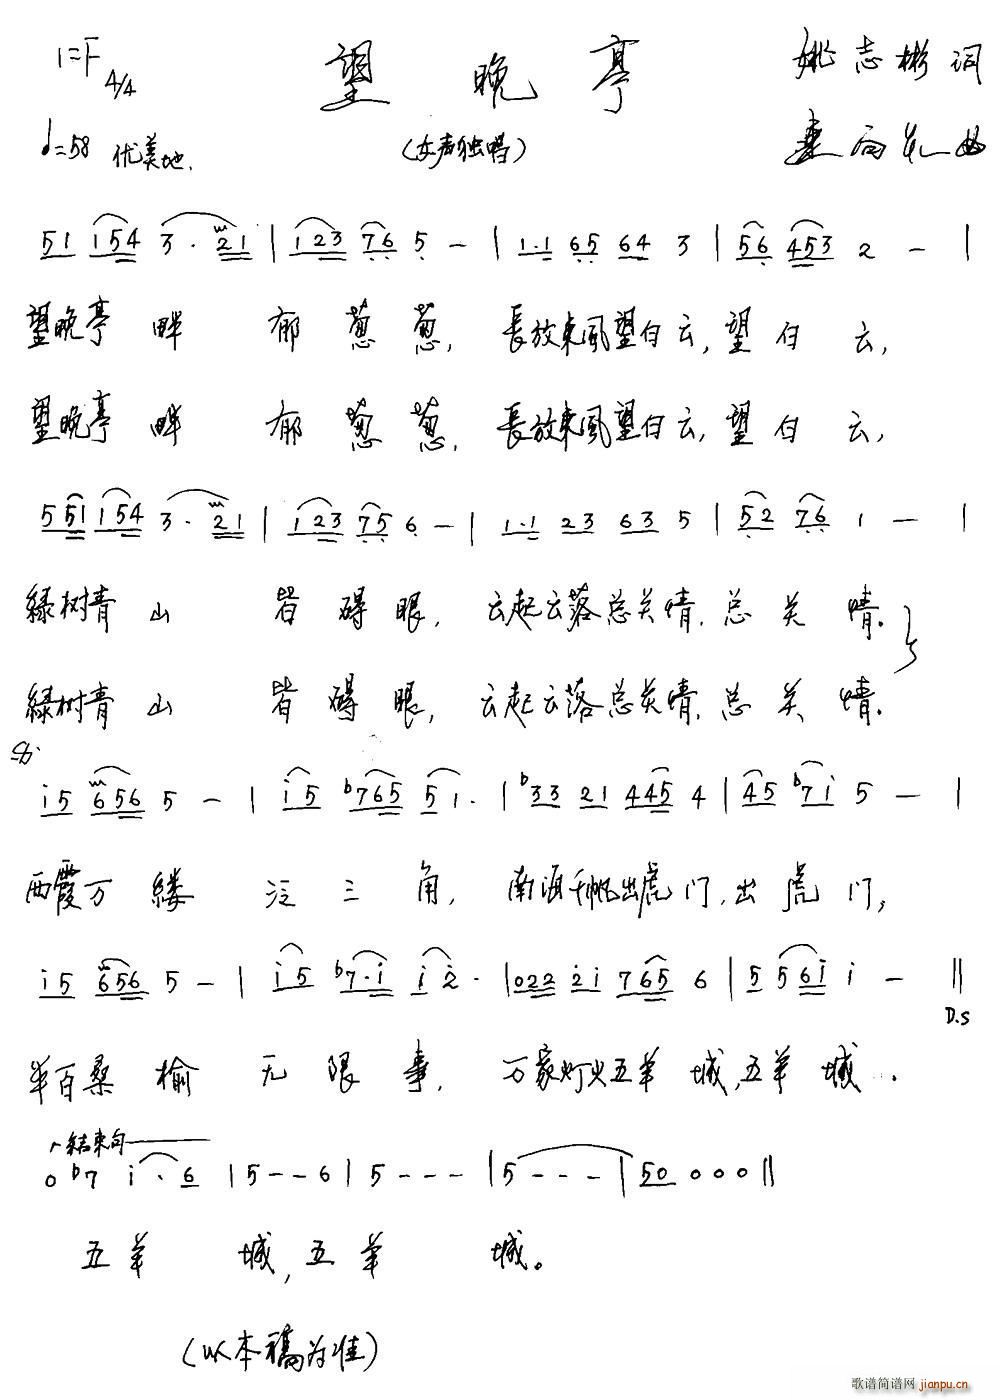 1=F 4/4 望晚亭 姚志彬词
♩=58 优美地. (女声独唱) 曲
51 154 3 · 21 | 123 76 5 - | 1·1 65 64 3 | 56 453 2 - |
望晚亭 畔 郁 葱 葱, 長放東風望白云, 望 白 云,
望晚亭 畔 郁 葱 葱, 長放東風望白云, 望 白 云,
551 154 3 · 21 | 123 75 6 - | 1·1 23 63 5 | 52 76 1 - |
緑树青 山 皆 碍 眼, 云起云落总关情, 总 关 情.
緑树青 山 皆 碍 眼, 云起云落总关情, 总 关 情.
i5 656 5 - | i5 b765 51· | b33 21 445 4 | 45 b7i 5 - |
西霞万 缕 泛 三 角, 南海千帆出虎门, 出 虎 门;
i5 656 5 - | i5 b7·i i2· | 022 2i 765 6 | 5 56i i - ‖
D.S
半百桑 榆 无 限 事, 万家灯火五羊 城, 五羊 城.
结束句
0 b7 i · 6 | 5 - - 6 | 5 - - - | 5 - - - | 50 0 0 0 ‖
五羊 城, 五羊 城。
(以本稿为准)
歌谱简谱网
jianpu.cn